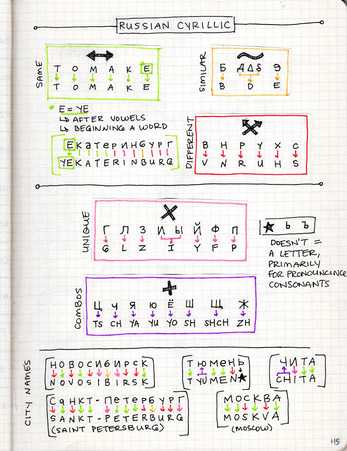 RUSSIAN CYRILLIC
SAME
Т О М А К Е
T O M A K E
* E = YE
↳ AFTER VOWELS
↳ BEGINNING A WORD
Екатеринбург
YEKATERINBURG
SIMILAR
Б Д Э
B D E
DIFFERENT
В Н Р У Х С
V N R U H S
UNIQUE
Г Л З И Ы Й Ф П
G L Z I Y F P
★ Ь Ъ
DOESN'T =
A LETTER,
PRIMARILY
FOR PRONOUNCING
CONSONANTS
COMBOS
Ц Ч Я Ю Ё Ш Щ Ж
TS CH YA YU YO SH SHCH ZH
CITY NAMES
НОВОСИБИРСК
NOVOSIBIRSK
ТЮМЕНЬ
TYUMEN★
ЧИТА
CHITA
САНКТ-ПЕТЕРБУРГ
SANKT-PETERBURG
(SAINT PETERSBURG)
МОСКВА
MOSKVA
(MOSCOW)
115